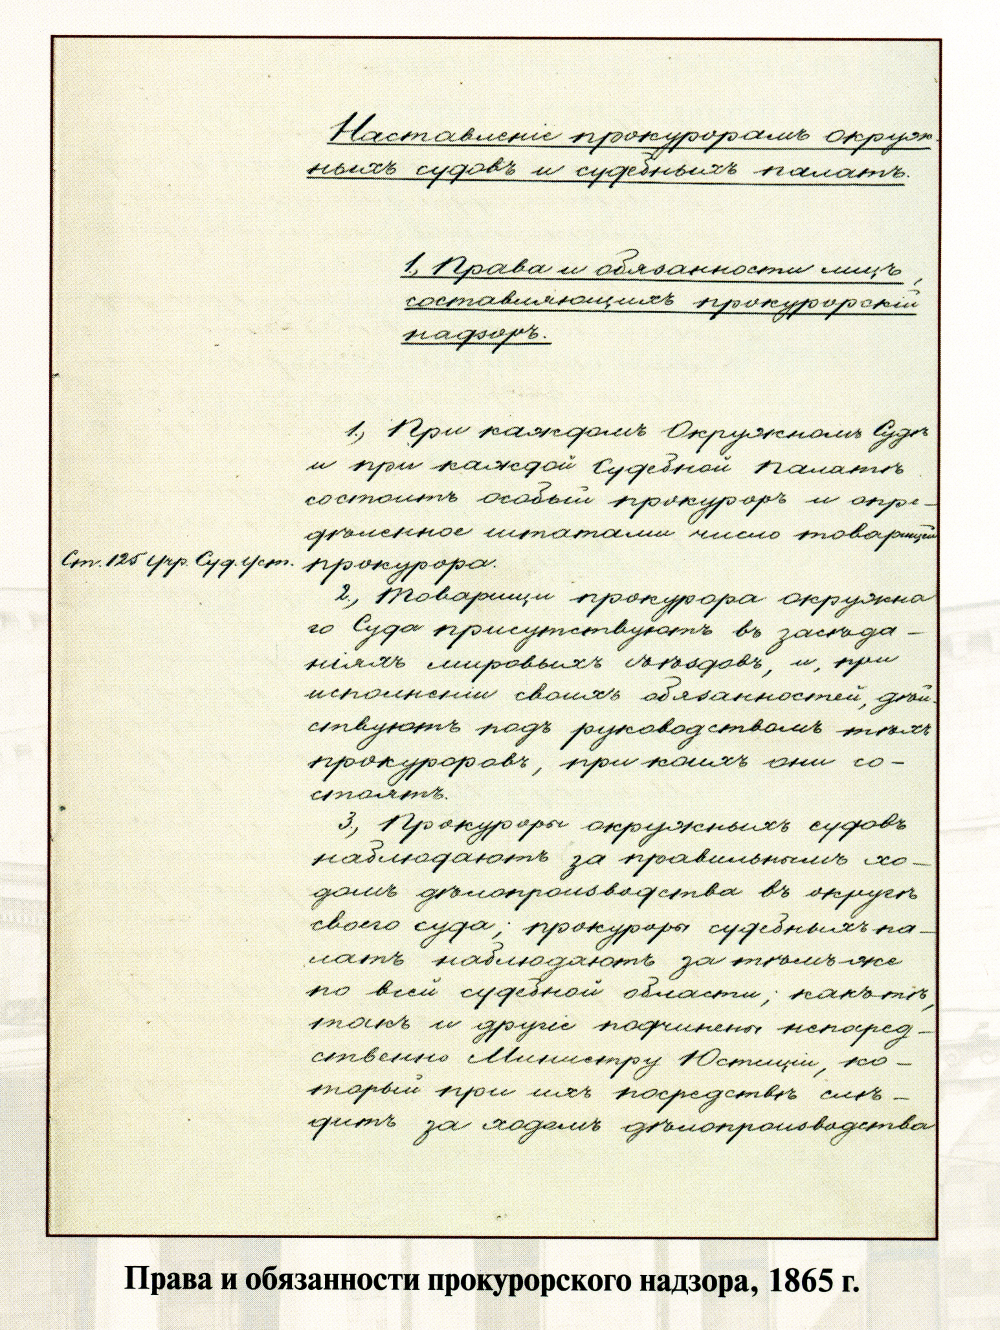 Наставленіе прокурорамъ окруж-
ныхъ судовъ и судебныхъ палатъ.
1., Права и обязанности лицъ,
составляющихъ прокурорскій
надзоръ.
1., При каждомъ Окружномъ Судѣ
и при каждой Судебной Палатѣ
состоитъ особый прокуроръ и опре-
дѣленное штатами число товарищей
Ст. 125 Учр. Суд. Уст.
прокурора.
2., Товарищи прокурора окружна
го Суда присутствуютъ въ засѣда-
ніяхъ мировыхъ съѣздовъ, и, при
исполненіи своихъ обязанностей, дѣй-
ствуютъ подъ руководствомъ тѣхъ
прокуроровъ, при коихъ они со-
стоятъ.
3., Прокуроры окружныхъ судовъ
наблюдаютъ за правильнымъ хо-
домъ дѣлопроизводства въ округѣ
своего суда; прокуроры судебныхъ па-
латъ наблюдаютъ за тѣмъ же
по всей судебной области; какъ тѣ,
такъ и другіе подчинены непосред-
ственно Министру Юстиціи, ко-
торый при ихъ посредствѣ слѣ-
дитъ за ходомъ дѣлопроизводства
Права и обязанности прокурорского надзора, 1865 г.